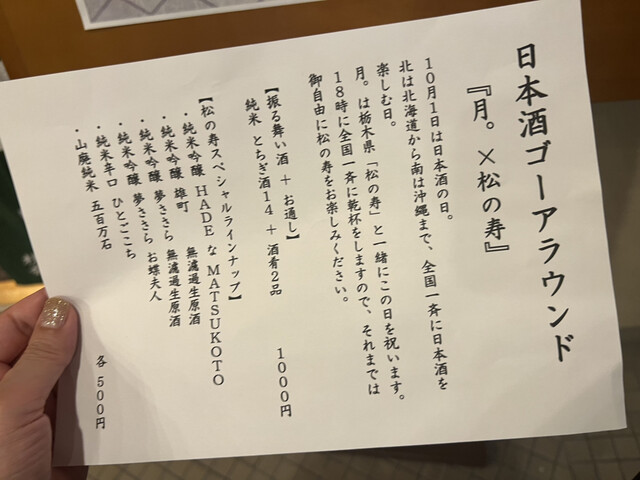 日本酒ゴーアラウンド
『月。×松の寿』
10月1日は日本酒の日。
北は北海道から南は沖縄まで、全国一斉に日本酒を
楽しむ日。
月。は栃木県「松の寿」と一緒にこの日を祝います。
18時に全国一斉に乾杯をしますので、それまでは
御自由に松の寿をお楽しみください。
【振る舞い酒 + お通し】
純米 とちぎ酒14 + 酒肴2品 1000円
【松の寿スペシャルラインナップ】
・純米吟醸 HADE な MATSUKOTO
・純米吟醸 雄町 無濾過生原酒
・純米吟醸 夢ささら 無濾過生原酒
・純米吟醸 夢ささら お蝶夫人
・純米辛口 ひとごこち
・山廃純米 五百万石 各500円